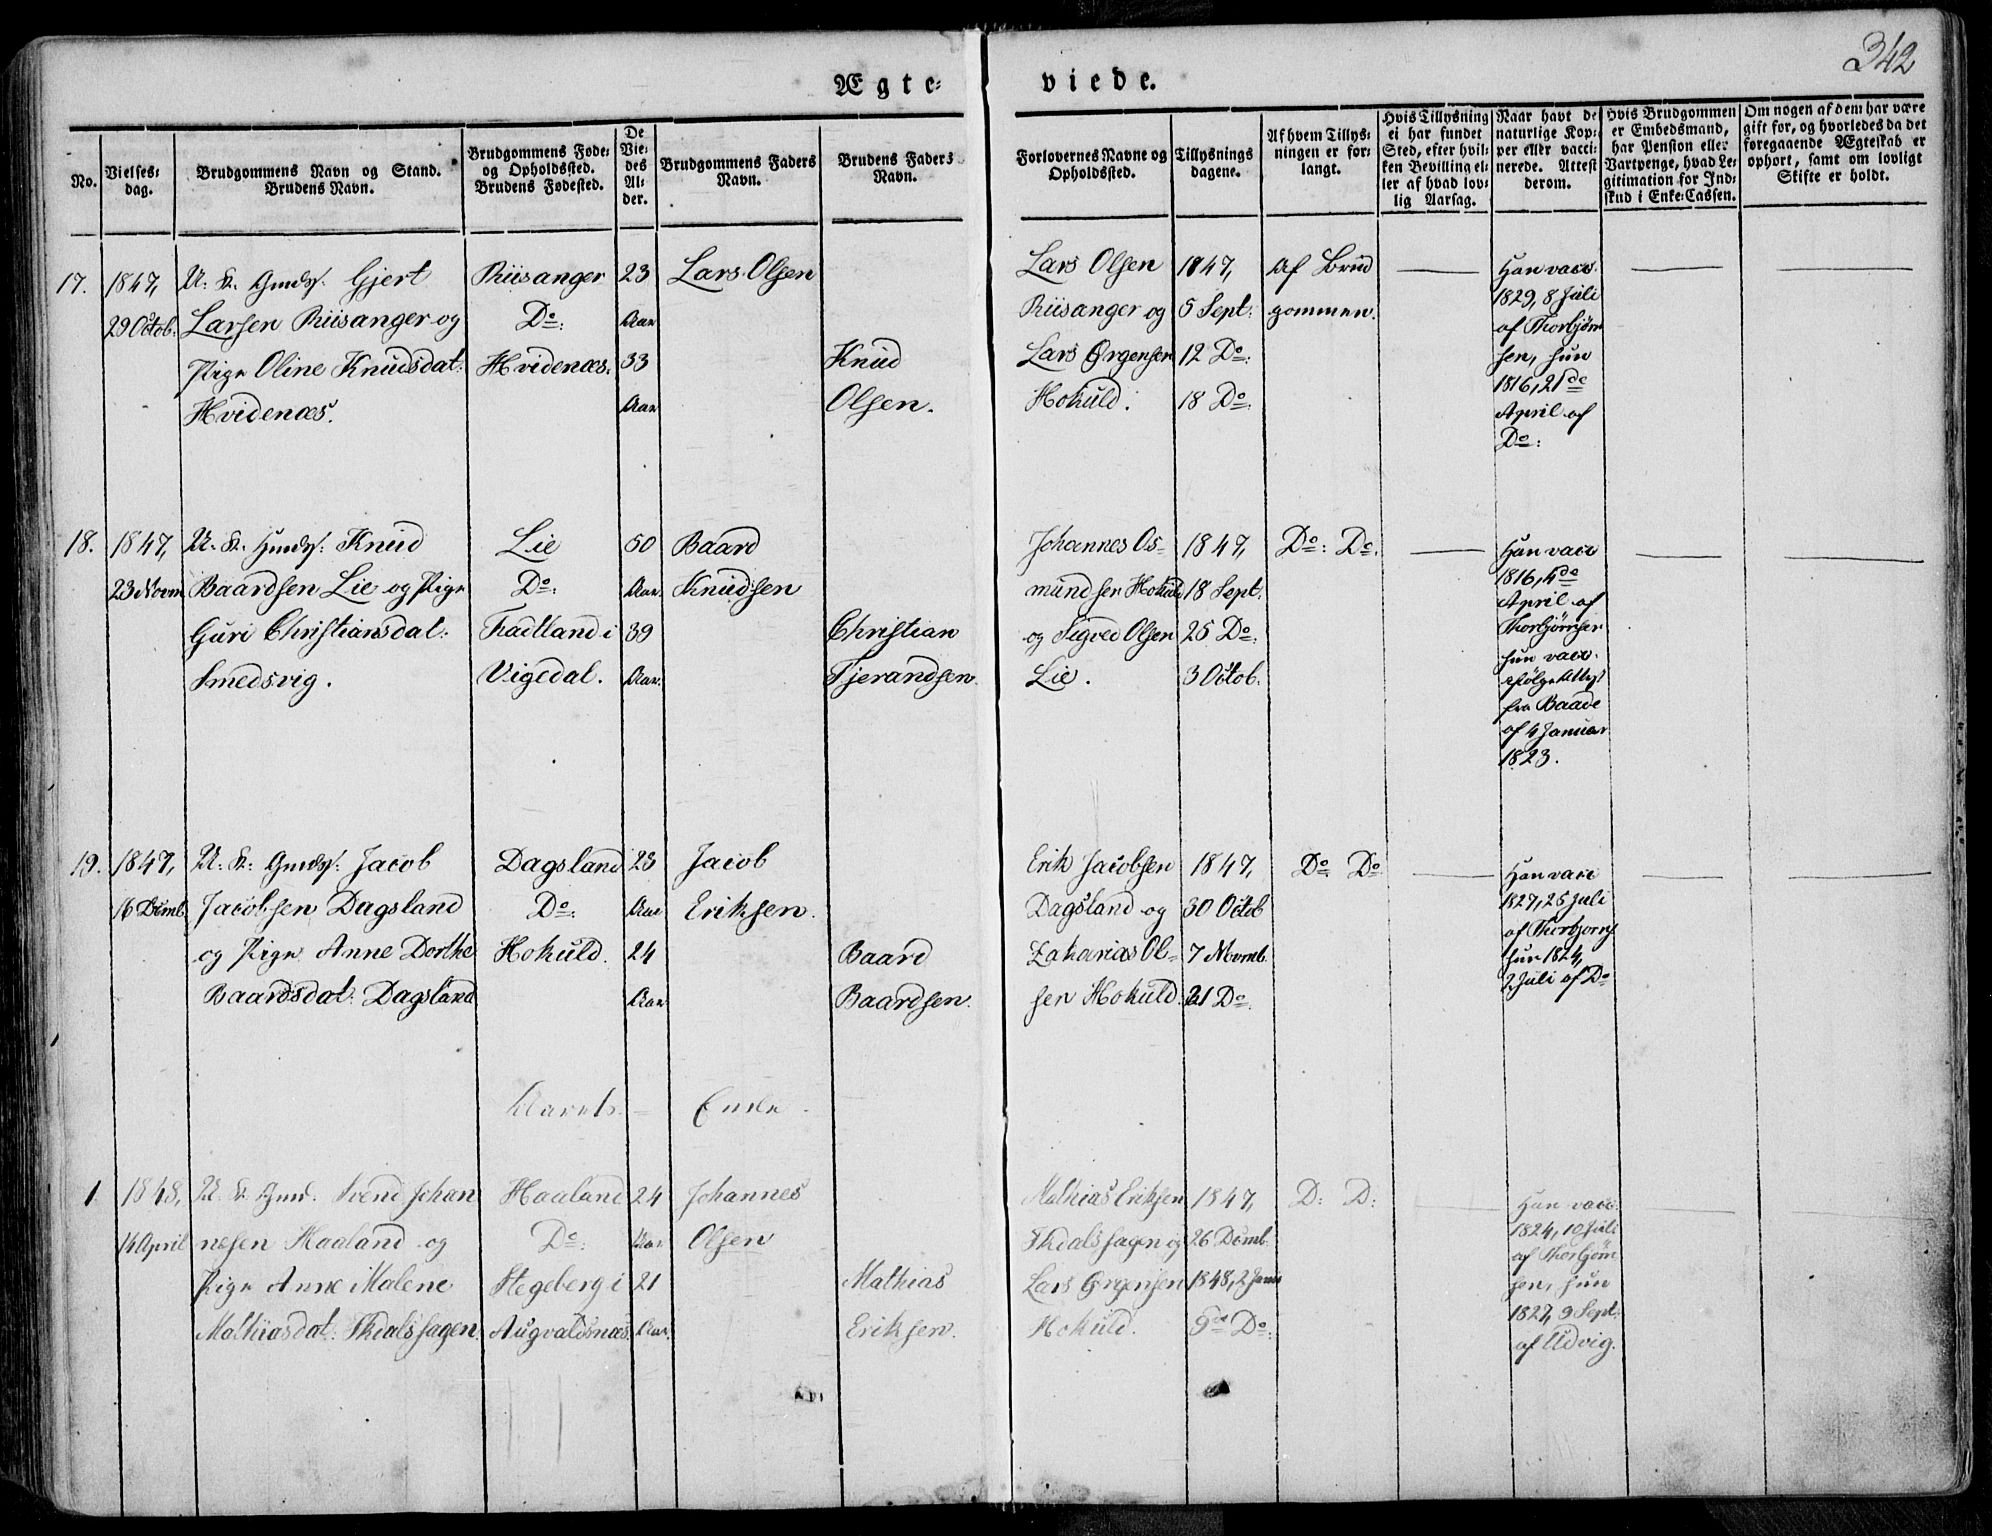 342
Ægte-
viede.
No.
Vielses-
dag.
Brudgommens Navn og Stand.
Brudens Navn.
Brudgommens Føde-
og Opholdssted.
Brudens Fødested.
De
Vie-
des
Al-
der.
Brudgommens Faders
Navn.
Brudens Faders
Navn.
Forlovernes Navne og
Opholdssted.
Tillysnings
dagene.
Af hvem Tillys-
ningen er for-
langt.
Hvis Tillysning
ei har fundet
Sted, efter hvil-
ken Bevilling el-
ler af hvad lov-
lig Aarsag.
Naar havt de
naturlige Kop-
per eller vacci-
nerede. Attest
derom.
Hvis Brudgommen
er Embedsmand,
har Pension eller
Vartpenge, hvad Le-
gitimation for Ind-
skud i Enke-Cassen.
Om nogen af dem har være
gift før, og hvorledes da det
foregaaende Ægteskab er
ophørt, samt om lovligt
Skifte er holdt.
17.
1847,
29 Octob.
U. K. Gmds. Gjert
Larsen Riisanger og
Pige Oline Knudsdat:
Hvidenæs.
Riisanger
Do:
Hvidenæs.
23
Aar
33
Aar
Lars Olsen
Knud
Olsen.
Lars Olsen
Riisanger og
Lars Ørgensen
Hokuld.
1847,
5 Sept:
12 Do:
18 Do:
Af Brud
gommen.
Han vacc.
1829, 8 Juli
af Thorbjørn
sen, hun
1816, 21de
April af
Do:
18.
1847,
23 Novm
U. K. Gmds: Knud
Baardsen Lie og Pige
Guri Christiansdat:
Smedsvig.
Lie
Do:
Fradland i
Vigedal.
50
Aar.
39
Aar.
Baard
Knudsen
Christian
Tjerandsen.
Johannes Os-
mundsen Hokuld
og Sigved Olsen
Lie.
1847,
18 Sept.
25 Do:
3 Octob.
Do: Do.
Han vacc
1816, 4de
April af
Thorbjørnsen
hun vacc.
ifølge Attest
fra Baade
af 4 Januar
1823.
19.
1847,
16 Dcmb
U. K: Gmds: Jacob
Jacobsen Dagsland
og Pige Anne Dorthe
Baardsdat: Dagsland
Dagsland
Do:
Hokuld.
23
Aar
24
Aar
Jacob
Eriksen.
Baard
Baardsen.
Erik Jacobsen
Dagsland og
Zakarias Ol-
sen Hokuld.
1847,
30 Octob
7 Novmb
21 Do.
Do Do
Han vacc
1827, 25 Juli
af Thorbjørns
hun 1824,
2 Juli af Do
Aarets - Ende.
1
1848,
14 April
U. K. Gmd. Svend Johan
nesen Haaland og
Pige Anne Malene
Mathiasdat: Skdalshagen.
Haaland
Do:
Stegeberg i
Augvaldsnæs.
24
Aar
21
Aar.
Johannes
Olsen
Mathias
Eriksen.
Mathias Eriksen
Skdalshagen og
Lars Ørgensen
Hokuld.
1847,
26 Dcmb.
1848, 2 Janu
9de Do:
D: D:
Han vacc.
1824, 10 Juli
af Thorbjørn
sen, hun
1827, 9 Sept.
af Udvig.